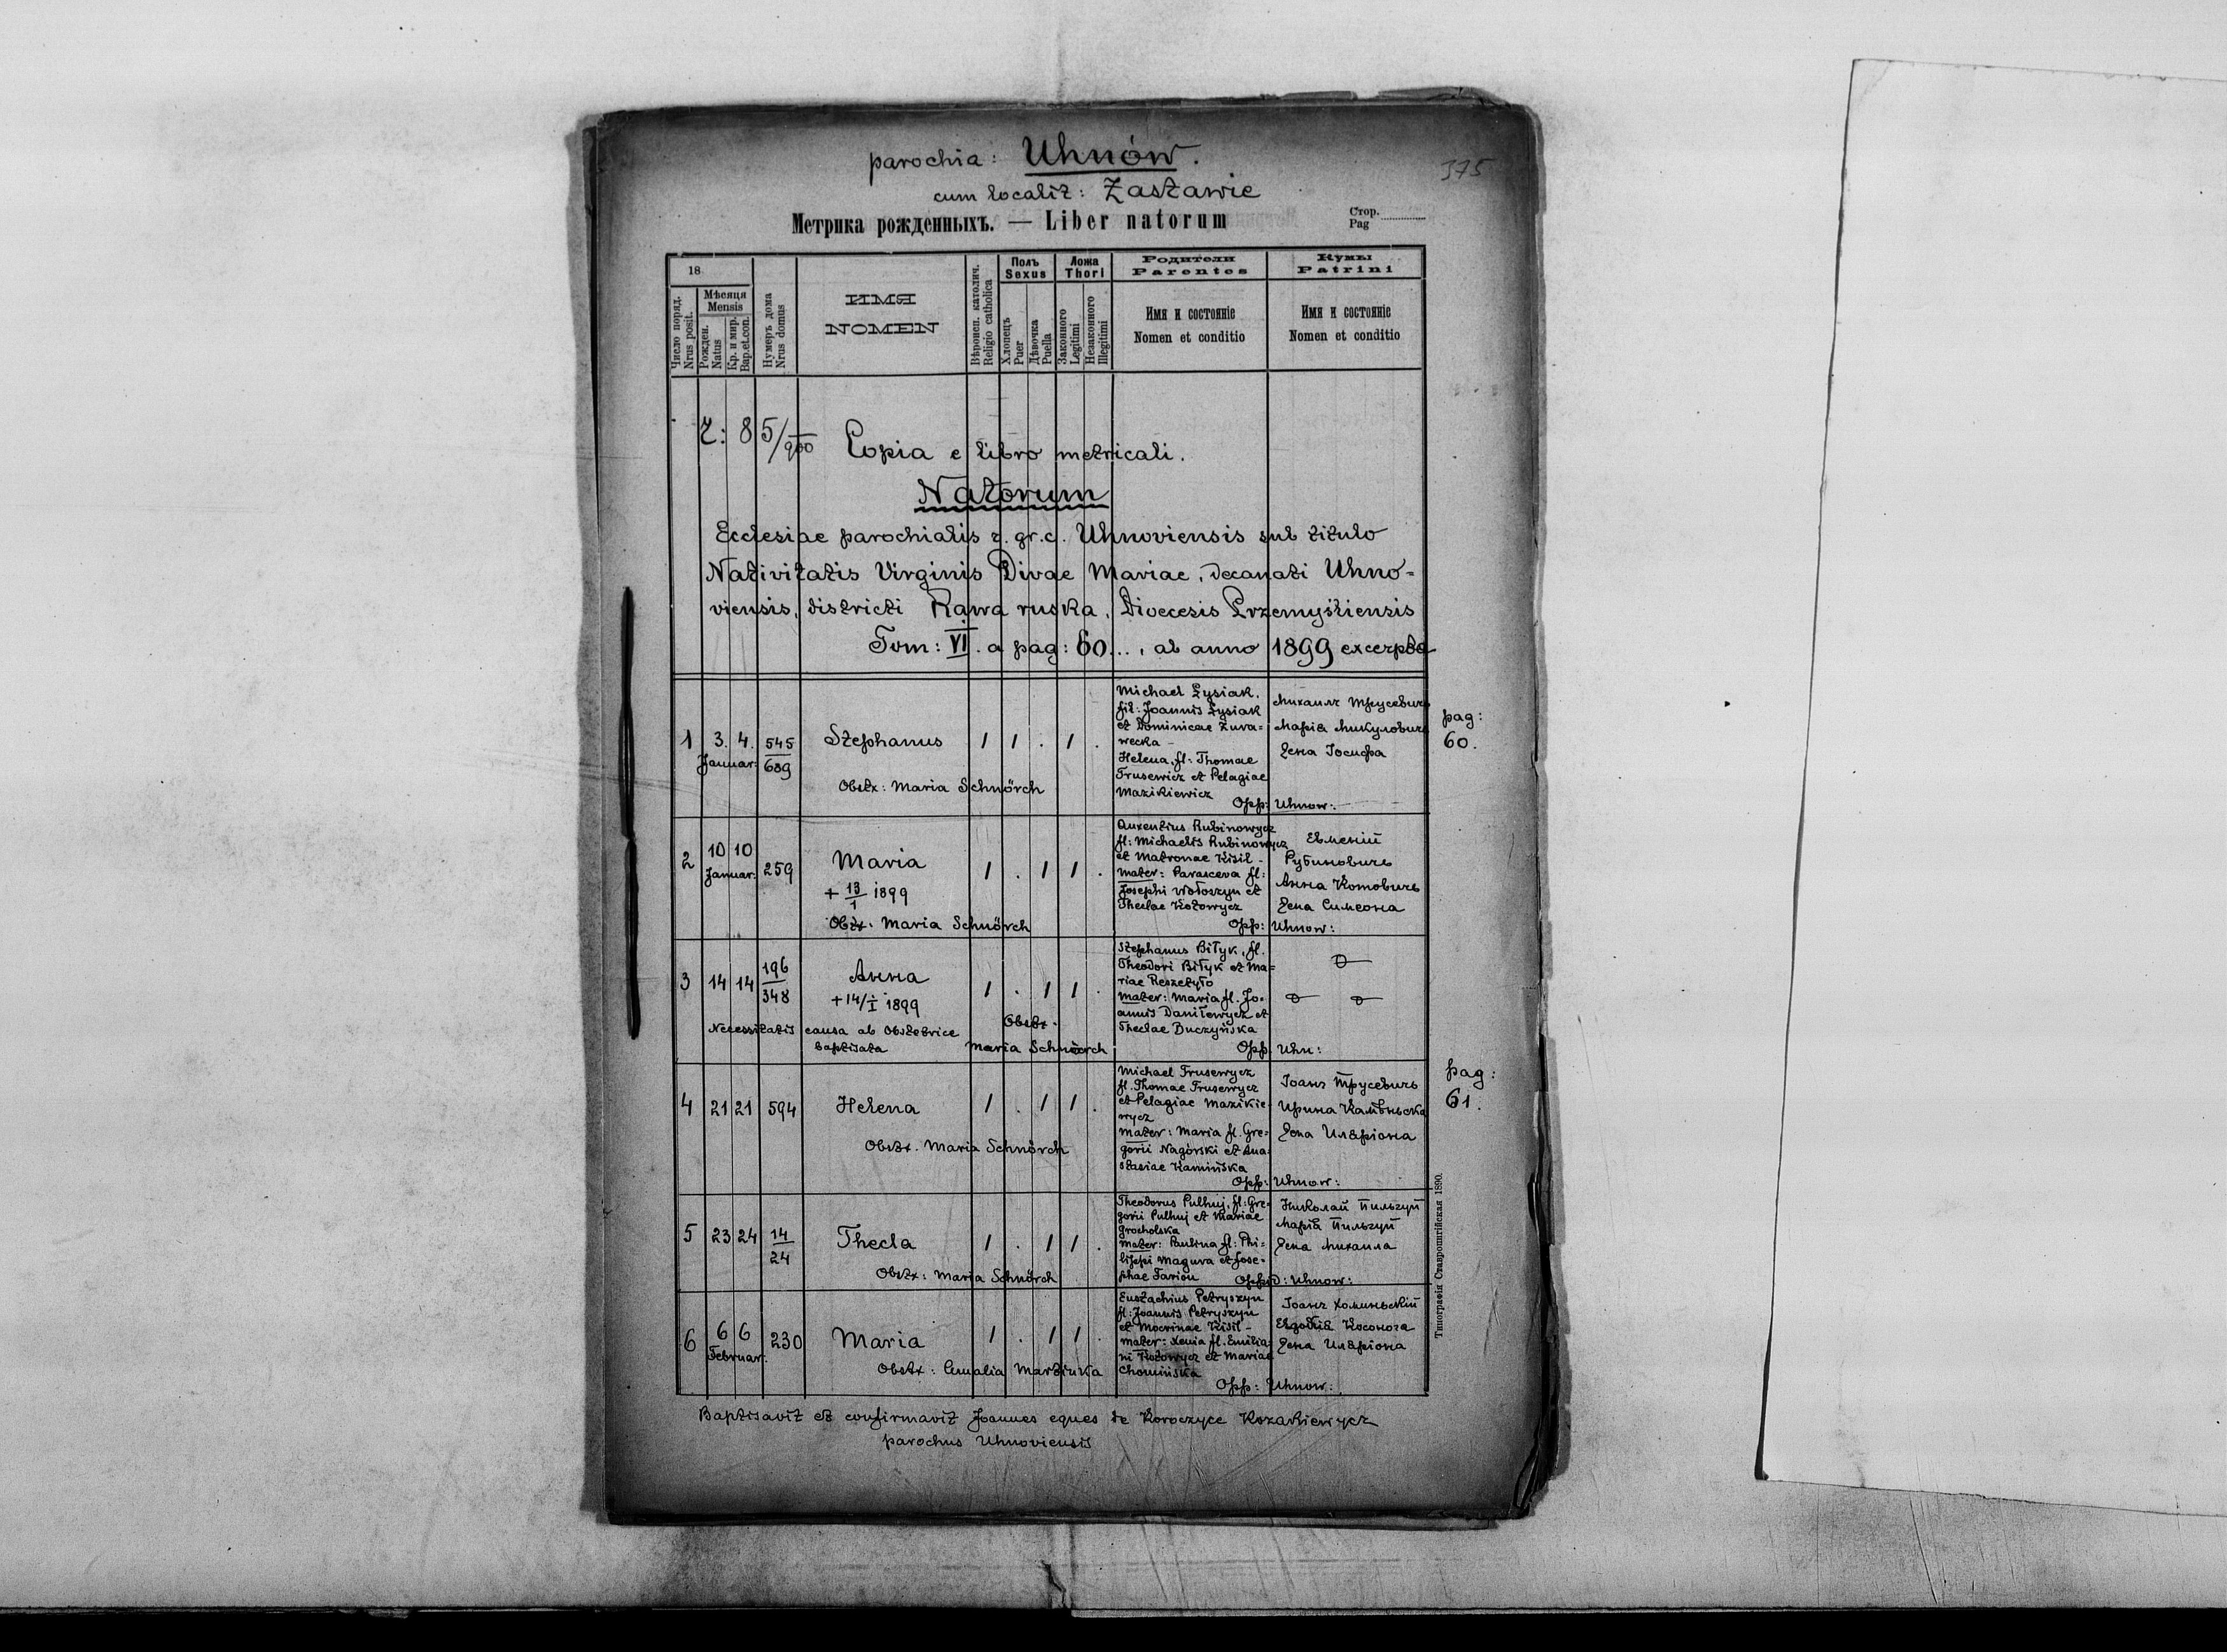 parochia: Uhnów.
375
cum localit: Zastawie
Метрика рожденныхъ. — Liber natorum
Стор.
Pag
18
Число поряд.
Nrus posit.
Мѣсяця
Mensis
Рожден.
Natus
Кр. и мир.
Bap.et.con.
Нумеръ дома
Nrus domus
ИМЯ
NOMEN
Вѣроисп. католич.
Religio catholica
Полъ
Sexus
Хлопецъ
Puer
Дѣвочка
Puella
Ложа
Thori
Законного
Legitimi
Незаконного
Illegitimi
Родители
Parentes
Имя и состояніе
Nomen et conditio
Кумы
Patrini
Имя и состояніе
Nomen et conditio
Z: 85/900
Copia e libro metricali.
Natorum
Ecclesiae parochialis r. gr. c. Uhnoviensis sub titulo
Nativitatis Virginis Divae Mariae, decanati Uhno=
viensis, districti Rawa ruska, Dioecesis Przemyśliensis
Tom: VI. a pag: 60..., ab anno 1899 excerpta
1 3. 4. 545/689 Stephanus 1 1 . 1 .
Januar:
Obstx: Maria Schnörch
Michael Łysiak,
fil: Joannis Łysiak
et Dominicae Zura=
wecka -
Helena, fl: Thomae
Trusewicz et Pelagiae
Mazikiewicz
Михаилъ Трусевичъ
Марія Микуловичъ
Жена Іосифа
Opp: Uhnow:
pag:
60.
2 10 10 259 Maria 1 . 1 1 .
Januar:
+ 13/1 1899
Obstx: Maria Schnörch
Auxentius Rubinowycz
fl: Michaelis Rubinowycz
et Matronae Kisil -
mater: Parasceva fl:
Josephi Wołoszyn et
Theclae Kotowycz
Евменій
Рубиновичъ
Анна Котовичъ
Жена Симеона
Opp: Uhnow:
3 14 14 196/348 Анна 1 . 1 1 .
+ 14/I 1899
Necessitatis causa ab obstetrice
baptisata
Obstx.
Maria Schnörch
Stephanus Biłyk, fl.
Theodori Biłyk et Ma=
riae Reszetyło
mater: Maria fl. Jo=
annis Daniłewycz et
Theclae Buczyńska
Opp. Uhn:
4 21 21 594 Helena 1 . 1 1 .
Obstx. Maria Schnörch
Michael Trusewycz
fl. Thomae Trusewycz
et Pelagiae Mazikie=
wycz
mater: Maria fl. Gre=
gorii Nagórski et Ana=
stasiae Kamińska
Іоанъ Трусевичъ
Ирина Камѣньска
Жена Иларіона
Opp: Uhnow:
pag:
61.
5 23 24 14/24 Thecla 1 . 1 1 .
Obstx: Maria Schnörch
Theodorus Pulhuj, fl: Gre=
gorii Pulhuj et Mariae
Grocholska
mater: Paulina fl: Phi=
lippi Magura et Jose=
phae Farion
Николай Пильгуй
Марія Пильгуй
Жена Михаила
Oppid: Uhnow:
6 6 6 230 Maria 1 . 1 1 .
Februar:
Obstx: Amalia Martiuka
Eustachius Petryszyn
fl: Joannis Petryszyn
et Mocrinae Kisil -
mater: Xenia fl. Emilia=
ni Kotowycz et Mariae
Chomińska
Іоанъ Хоминьскій
Евдокія Косонога
Жена Иларіона
Opp: Uhnow:
Baptisavit et confirmavit Joannes eques de Koroczyce Kozakiewycz
parochus Uhnoviensis
Типографія Ставропигійская 1890.